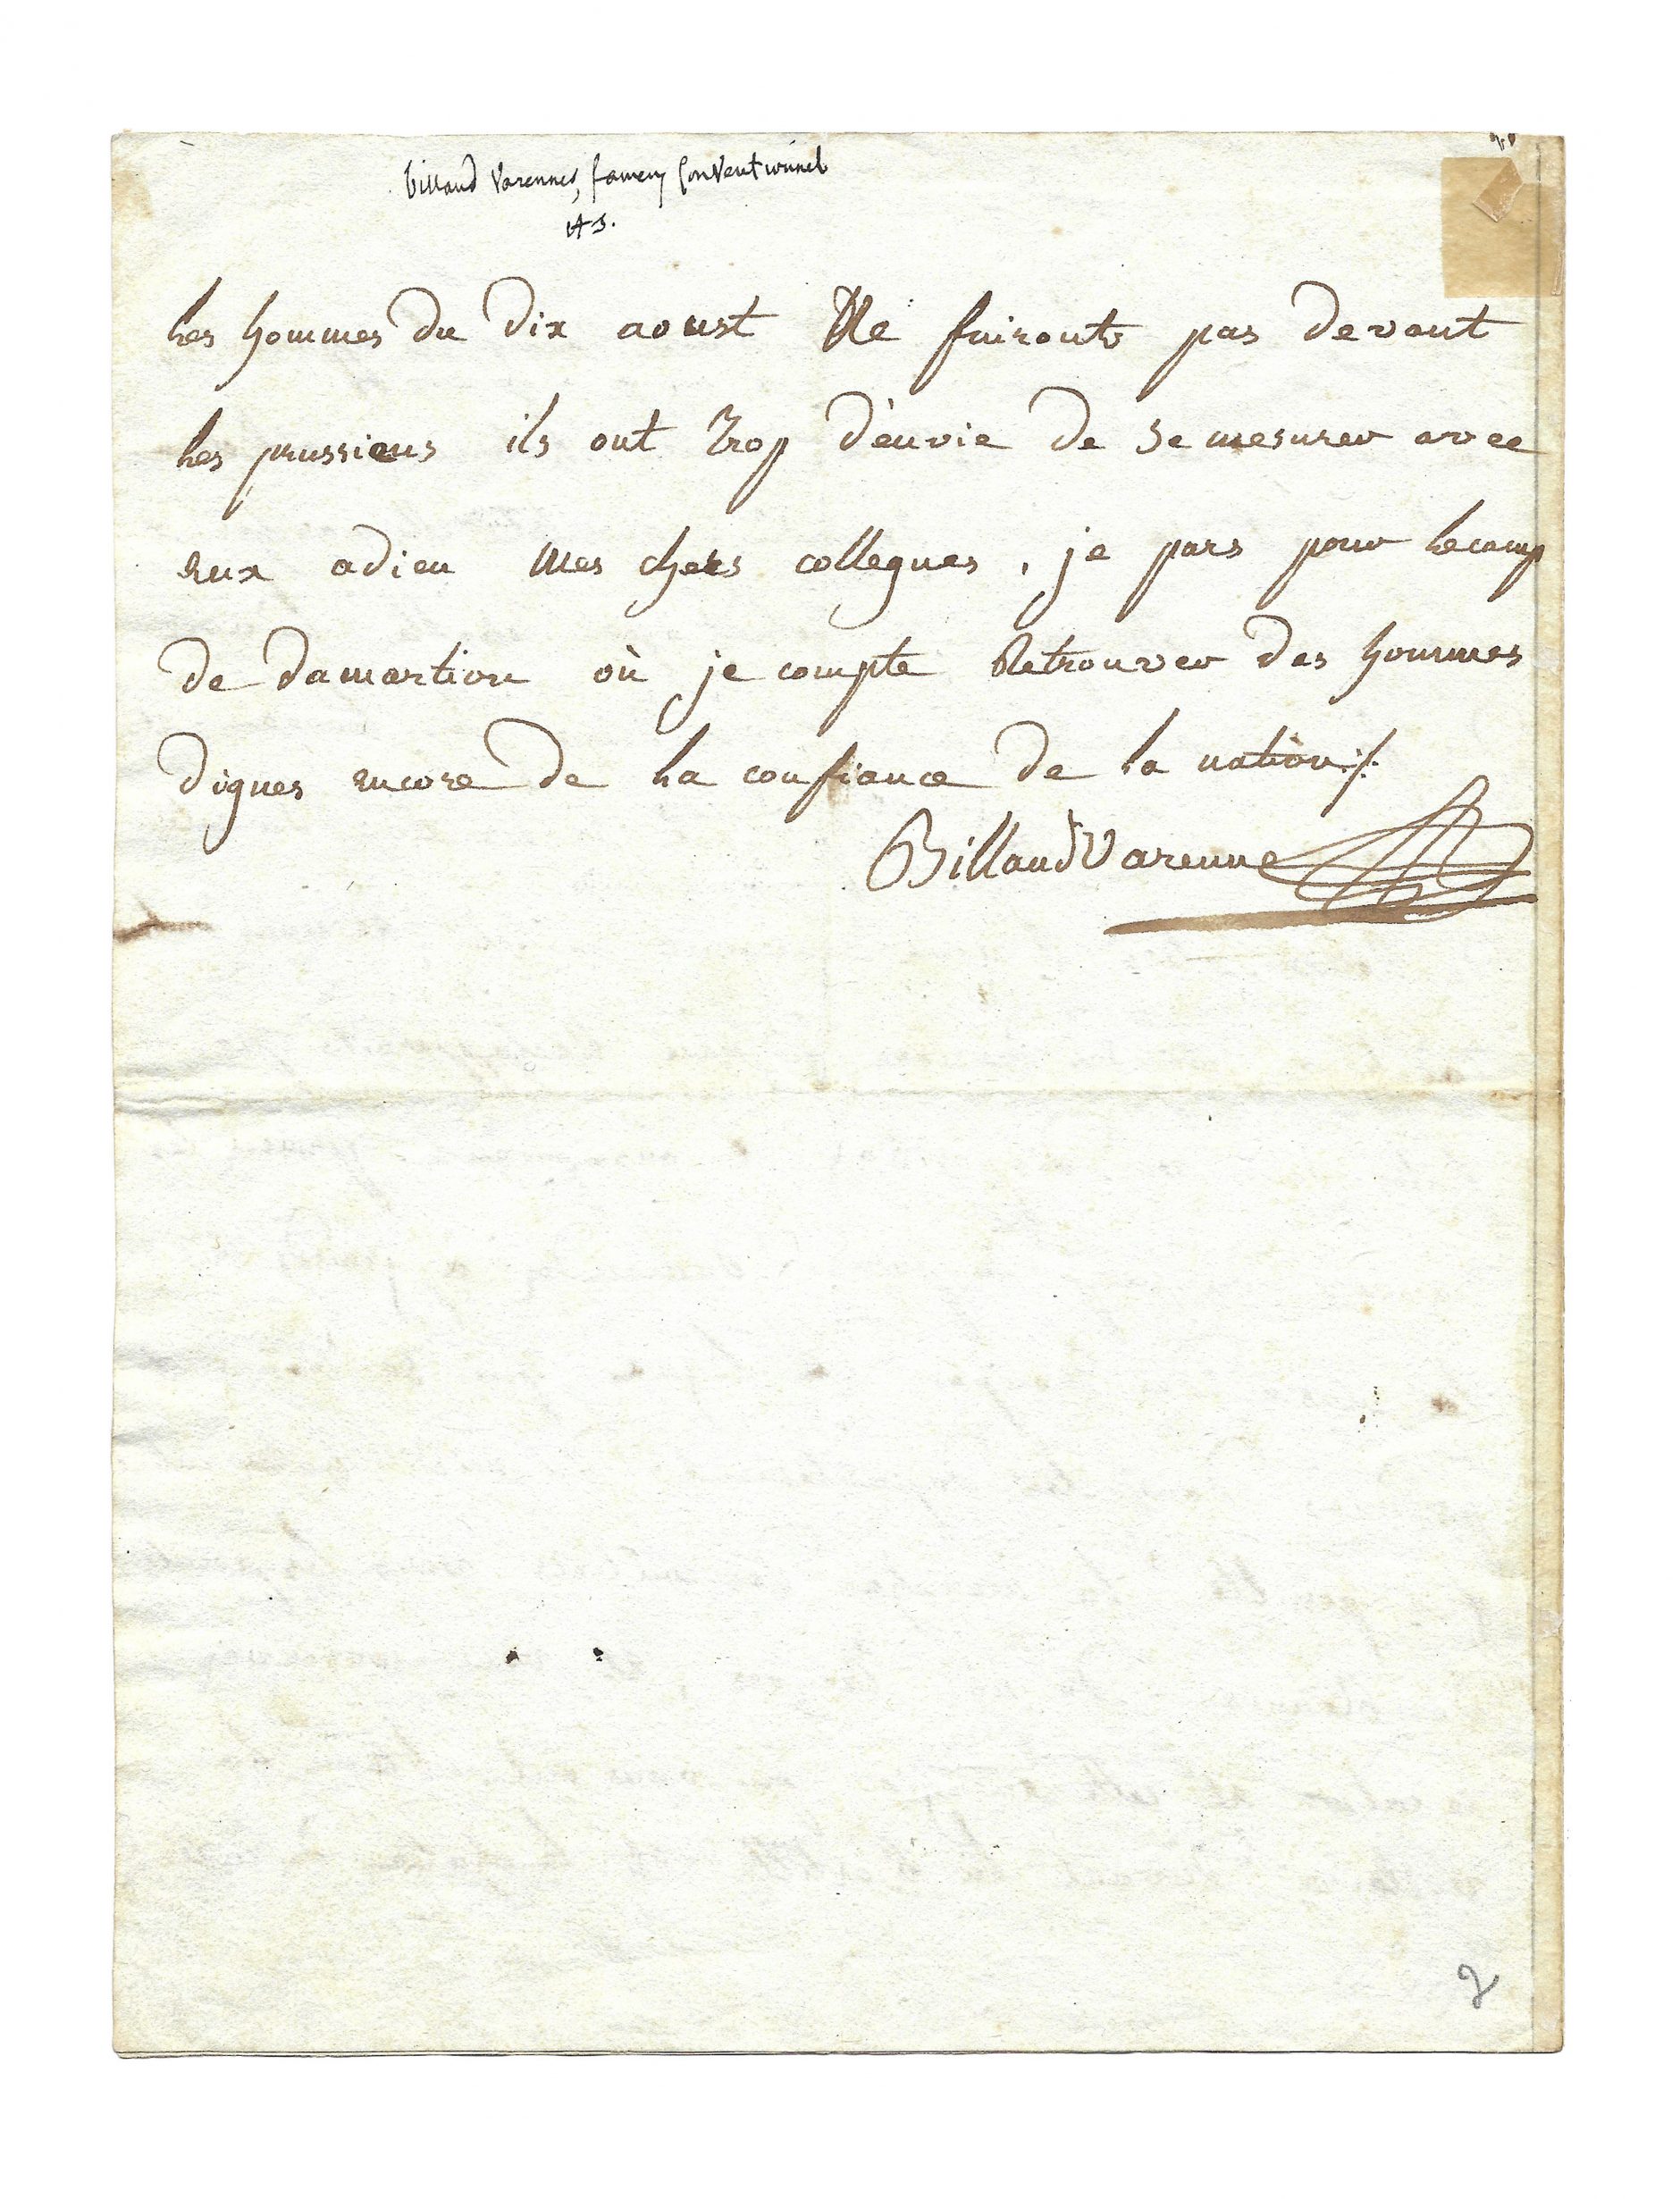 billaud Varennes, fameux Conventionnel
les hommes du dix aoust Ne fuironts pas devant
les prussiens ils ont trop d'envie de se mesurer avec
eux adieu Mes chers collegues, je pars pour le camp
de damartion où je compte Retrouver des hommes
dignes encore de la confiance de la nation ./.
BillaudVarenne
2